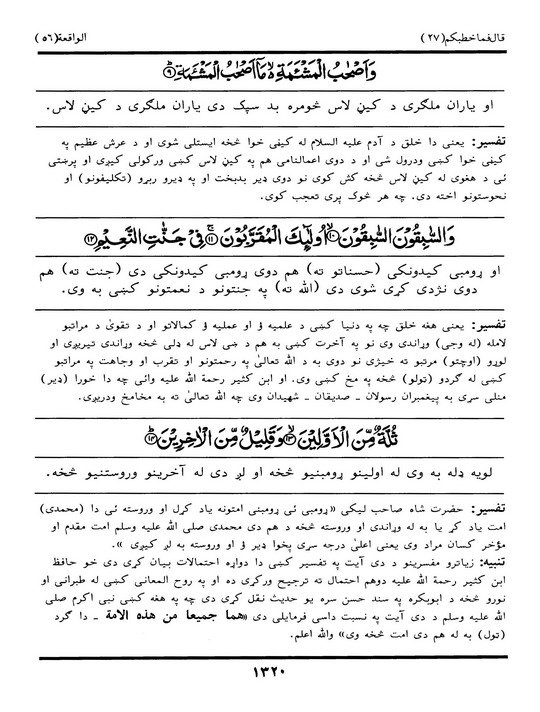 قال فما خطبكم (۲۷) الواقعة (۵۶)
وَاَصْحٰبُ الْمَشْـَٔمَةِ ۙ مَاۤ اَصْحٰبُ الْمَشْـَٔمَةِ ۹
او یاران ملگری د کینِ لاس څومره بد سپک دی یاران ملگری د کینِ لاس.
تفسیر: یعنی دا خلق د آدم علیه السلام له کیڼی خوا څخه ایستلی شوی او د عرش عظیم په
کیڼی خوا کښی ودرول شی او د دوی اعمالنامی هم په کینِ لاس کښی ورکولی کیږی او پرښتی
ئی د هغوی له کینِ لاس څخه کش کوی نو دوی ډیر بدبخت او په ډیرو ربړو (تکلیفونو) او
نحوستونو اخته دی. چه هر څوک پری تعجب کوی.
وَالسّٰبِقُوْنَ السّٰبِقُوْنَ ۱۰ اُولٰٓئِكَ الْمُقَرَّبُوْنَ ۱۱ فِیْ جَنّٰتِ النَّعِیْمِ ۱۲
او ړومبی کیدونکی (حسناتو ته) هم دوی ړومبی کیدونکی دی (جنت ته) هم
دوی نژدی کړی شوی دی (الله ته) په جنتونو د نعمتونو کښی به وی.
تفسیر: یعنی هغه خلق چه په دنیا کښی د علمیه ؤ او عملیه ؤ کمالاتو او د تقویٰ د مراتبو
لامله (له وجی) وړاندی وی نو په آخرت کښی به هم د ښی لاس له ډلی څخه وړاندی تیریږی او
لوړو (اوچتو) مرتبو ته خیژی نو دوی به د الله تعالیٰ په رحمتونو او تقرب او وجاهت په مراتبو
کښی له گردو (تولو) څخه په مخ کښی وی. او ابن کثیر رحمة الله علیه وائی چه دا خورا (ډیر)
منلی سړی به پیغمبران رسولان ـ صدیقان ـ شهیدان وی چه الله تعالیٰ ته به مخامخ ودریږی.
ثُلَّةٌ مِّنَ الْاَوَّلِیْنَ ۱۳ وَقَلِیْلٌ مِّنَ الْاٰخِرِیْنَ ۱۴
لویه ډله به وی له اولینو ړومبنیو څخه او لږ دی له آخرینو وروستنیو څخه.
تفسیر: حضرت شاه صاحب لیکی «ړومبی ئی ړومبنی امتونه یاد کړل او وروسته ئی دا (محمدی)
امت یاد کړ یا به له وړاندی او وروسته څخه د هم دی محمدی صلی الله علیه وسلم امت مقدم او
مؤخر کسان مراد وی یعنی اعلیٰ درجه سړی پخوا ډیر ؤ او وروسته به لږ کیږی ».
تنبیه: زیاترو مفسرینو د دی آیت په تفسیر کښی دا دواړه احتمالات بیان کړی دی خو حافظ
ابن کثیر رحمة الله علیه دوهم احتمال ته ترجیح ورکړی ده او په روح المعانی کښی له طبرانی او
نورو څخه د ابوبکره په سند حسن سره یو حدیث نقل کړی دی چه په هغه کښی نبی اکرم صلی
الله علیه وسلم د دی آیت په نسبت داسی فرمایلی دی «هما جمیعا من هذه الامة ـ دا گرد
(تول) به له هم دی امت څخه وی» والله اعلم.
۱۳۲۰